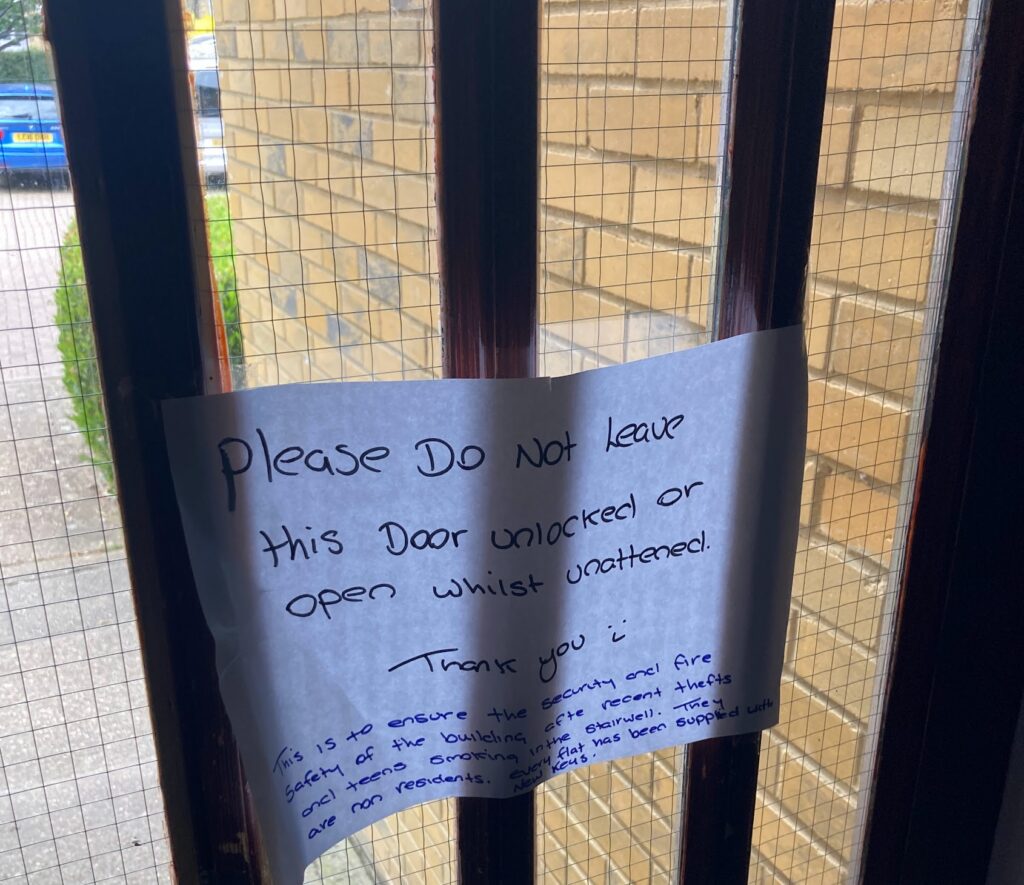 Please Do Not Leave
this Door unlocked or
open whilst unattened.
Thank you :)
This is to ensure the security and fire
safety of the building afte recent thefts
and teens smoking in the stairwell. They
are non residents. every flat has been supplied with
New keys.